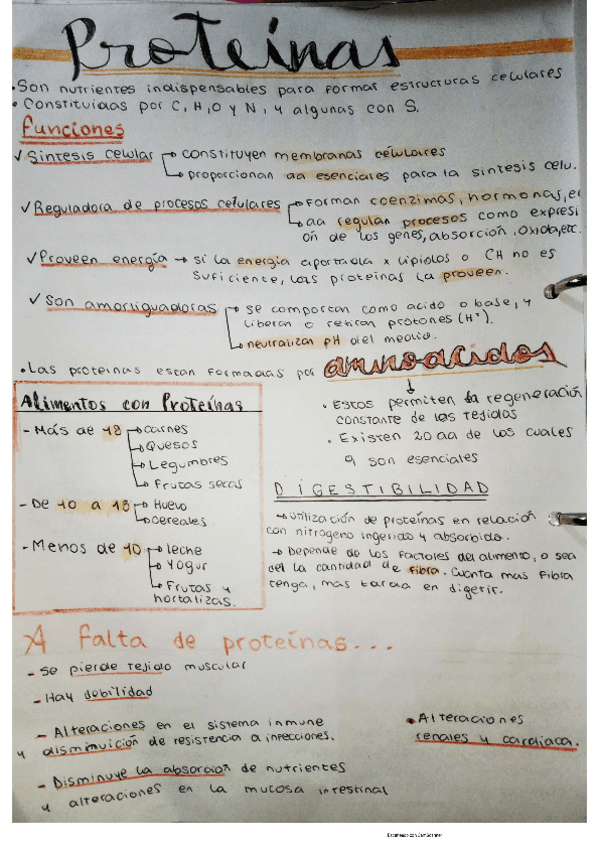 Proteínas
• Son nutrientes indispensables para formar estructuras celulares
• Constituidas por C, H, O y N, y algunas con S.
Funciones
✓ Síntesis celular → constituyen membranas celulares
→ proporcionan aa esenciales para la sintesis celu.
✓ Reguladora de procesos celulares → Forman coenzimas, hormonas, e
→ aa regulan procesos como expresi
ón de los genes, absorción, oxida, etc.
✓ Proveen energía → si la energía aportada x lípidos o CH no es
suficiente, las proteínas la proveen.
✓ Son amortiguadoras → se comportan como acido o base, y
liberan o retiran protones (H⁺).
→ neutralizan pH del medio.
• Las proteínas estan formadas por aminoácidos
Alimentos con Proteínas
- Más de 18 → carnes
→ Quesos
→ Legumbres
→ Frutas secas
- De 10 a 18 → Huevo
→ cereales
- Menos de 10 → leche
→ Yogur
→ Frutas y
hortalizas.
• Estos permiten la regeneración
constante de los tejidos
• Existen 20 aa de los cuales
9 son esenciales
DIGESTIBILIDAD
→ utilización de proteínas en relación
con nitrogeno ingerido y absorbido.
→ Depende de los factores del alimento, o sea
de la cantidad de fibra. Cuanta mas fibra
tenga, mas tarda en digerir.
A falta de proteínas...
- Se pierde tejido muscular
- Hay debilidad
- Alteraciones en el sistema inmune
y disminuición de resistencia a infecciones.
- Disminuye la absorcion de nutrientes
y alteraciones en la mucosa intestinal
• Alteraciones
renales y cardiaca.
Escaneado con CamScanner